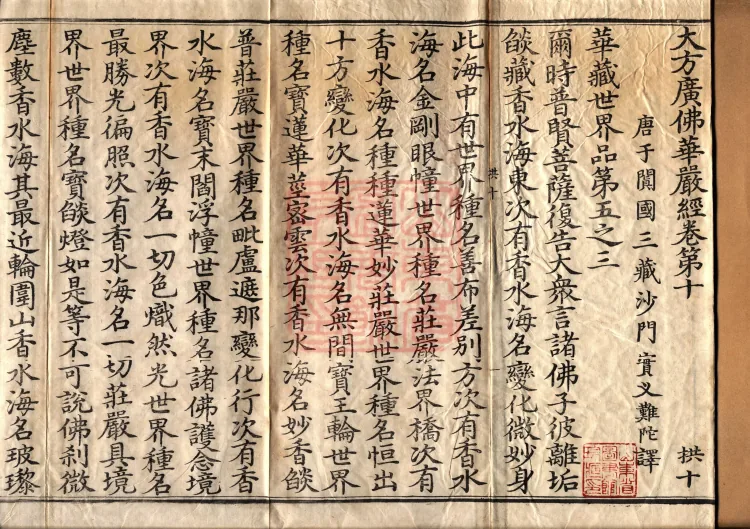 大方廣佛華嚴經卷第十 拱十
唐于闐國三藏沙門實叉難陀譯
華藏世界品第五之三
爾時普賢菩薩復告大衆言諸佛子彼離垢
燄藏香水海東次有香水海名變化微妙身
此海中有世界種名善布差別方次有香水
拱十
海名金剛眼幢世界種名莊嚴法界橋次有
香水海名種種蓮華妙莊嚴世界種名恒出
十方變化次有香水海名無間寶王輪世界
種名寶蓮華莖密雲次有香水海名妙香燄
普莊嚴世界種名毗盧遮那變化行次有香
水海名寶末閻浮幢世界種名諸佛護念境
界次有香水海名一切色熾然光世界種名
最勝光徧照次有香水海名一切莊嚴具境
界世界種名寶燄燈如是等不可說佛刹微
塵數香水海其最近輪圍山香水海名玻瓈